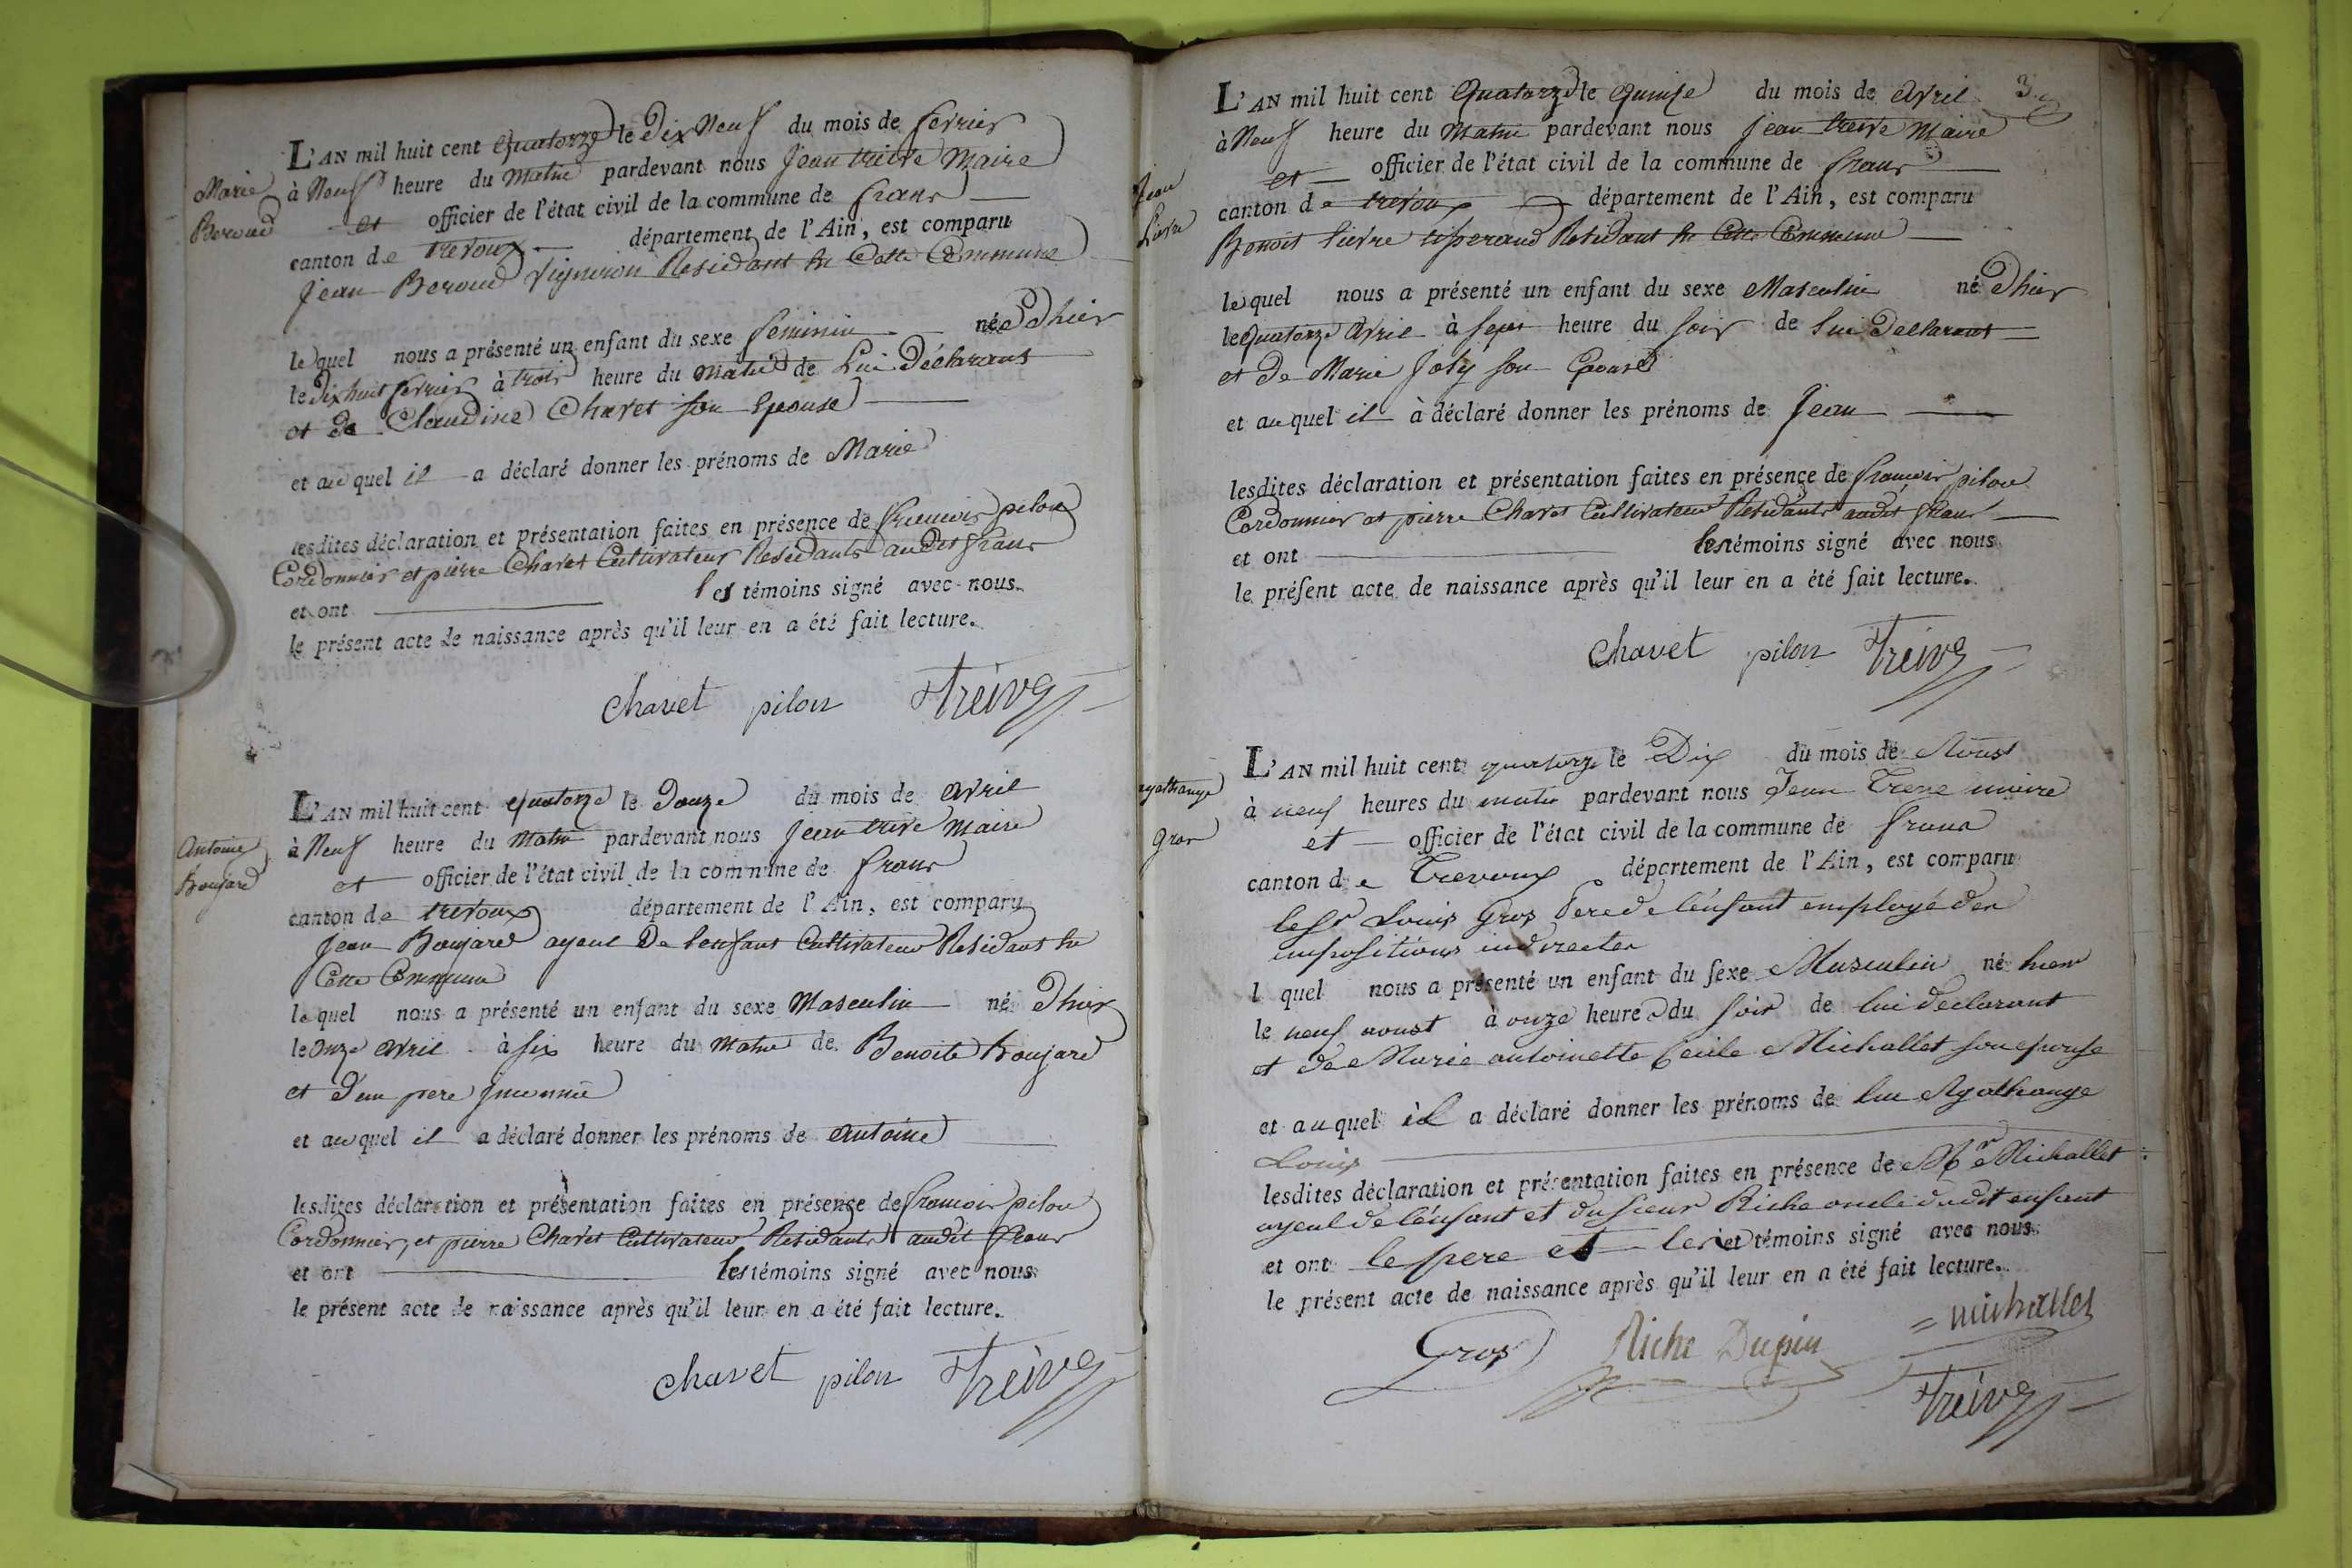 L'AN mil huit cent Quatorze le Dix Neuf du mois de fevrier
Marie
Beroud
à Neuf heure du Matin pardevant nous Jean treive Maire
et officier de l'état civil de la commune de frans
canton de trevoux département de l'Ain, est comparu
Jean Beroud Vigneron Residant en Cette Commune
lequel nous a présenté un enfant du sexe feminin née Dhier
le Dix huit fevrier à trois heure du matin de Lui Déclarant
et de Claudine Chavet son Epouse
et au quel il a déclaré donner les prénoms de Marie
lesdites déclaration et présentation faites en présence de francois pilon
Cordonnier et pierre Chavet Cultivateur Residants audit frans
et ont les témoins signé avec nous
le présent acte de naissance après qu'il leur en a été fait lecture.
Chavet pilon Treive
L'AN mil huit cent quatorze le Douze du mois de avril
Antoine
Boujard
à Neuf heure du Matin pardevant nous Jean treive Maire
et officier de l'état civil de la commune de frans
canton de trevoux département de l'Ain, est comparu
Jean Boujard ayeul De lenfant Cultivateur Residant en
Cette Commune
lequel nous a présenté un enfant du sexe Masculin né Dhier
le onze avril à six heure du Matin de Benoite Boujard
et d'un pere Inconnu
et au quel il a déclaré donner les prénoms de Antoine
lesdites déclaration et présentation faites en présence de francois pilon
Cordonnier, et pierre Chavet Cultivateur Residants audit frans
et ont les témoins signé avec nous
le présent acte de naissance après qu'il leur en a été fait lecture.
Chavet pilon Treive
3
L'AN mil huit cent Quatorze le Quinze du mois de avril
à Neuf heure du Matin pardevant nous Jean treive Maire
et officier de l'état civil de la commune de frans
Jean
Lievre
canton de trevoux département de l'Ain, est comparu
Benoit lievre tisserand Residant en Cette Commune
lequel nous a présenté un enfant du sexe Masculin né Dhier
le quatorze avril à sept heure du soir de lui Declarant
et De Marie Joly son Epouse
et au quel il à déclaré donner les prénoms de Jean
lesdites déclaration et présentation faites en présence de francois pilon
Cordonnier et pierre Chavet Cultivateur Residants audit frans
et ont les témoins signé avec nous
le présent acte de naissance après qu'il leur en a été fait lecture.
Chavet pilon Treive
L'AN mil huit cent quatorze le Dix du mois de Aoust
agathange
gros
à neuf heures du matin pardevant nous Jean Treve maire
et officier de l'état civil de la commune de frans
canton de Trevoux département de l'Ain, est comparu
le Sr Louis Gros Pere de l'enfant employé des
impositions indirectes
l quel nous a présenté un enfant du sexe Masculin né hier
le neuf aoust à onze heures du soir de lui declarant
et de Marie antoinette Cecile Michallet son epouse
et auquel il a déclaré donner les prénoms de luc Agathange
Louis
lesdites déclaration et présentation faites en présence de Mr Michallet
ayeul de l'enfant et du sieur Riche oncle dudit enfant
et ont le pere et les témoins signé avec nous
le présent acte de naissance après qu'il leur en a été fait lecture.
Gros Riche Dupin michallet
Treive